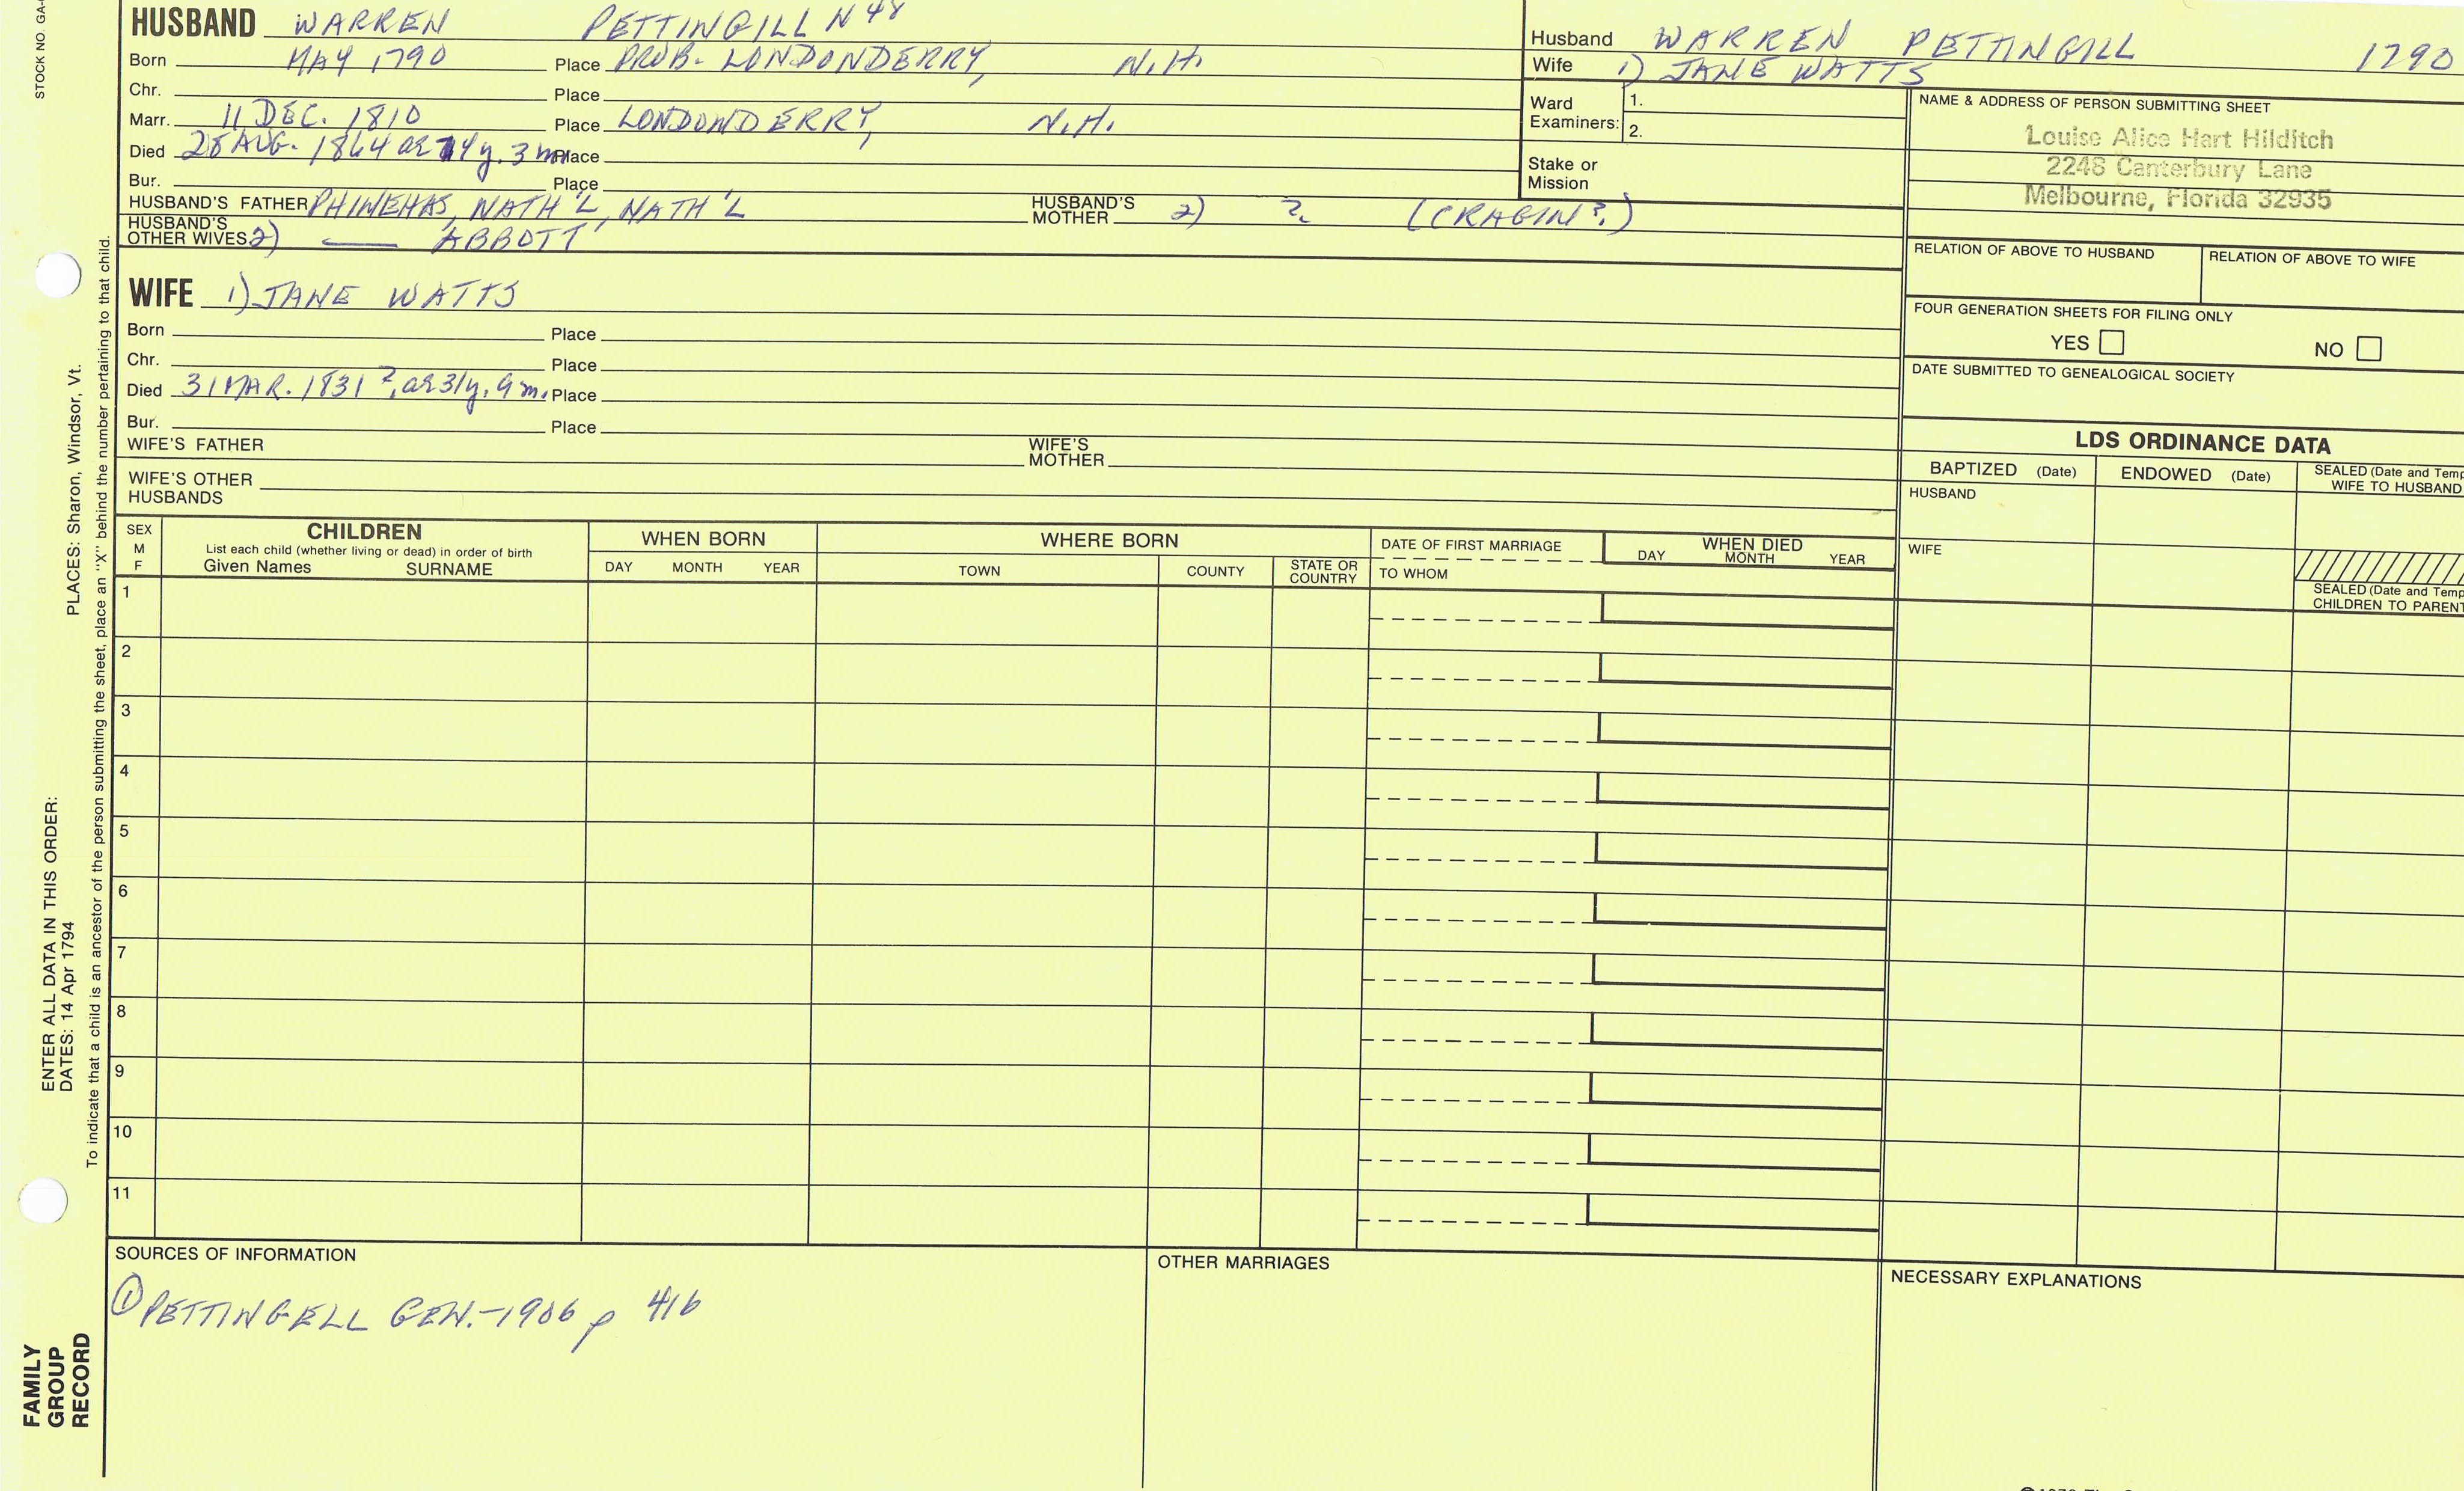 HUSBAND WARREN PETTINGILL N48
Born MAY 1790 Place PROB. LONDONDERRY, N.H.
Chr. Place
Marr. 11 DEC. 1810 Place LONDONDERRY, N.H.
Died 28 AUG. 1864 ae 74y. 3 m Place
Bur. Place
HUSBAND'S FATHER PHINEHAS, NATH'L, NATH'L HUSBAND'S MOTHER 2) ? (CRAGIN?)
HUSBAND'S OTHER WIVES 2) —— ABBOTT
WIFE 1) JANE WATTS
Born Place
Chr. Place
Died 31 MAR. 1831?, ae 31y. 9 m. Place
Bur. Place
WIFE'S FATHER WIFE'S MOTHER
WIFE'S OTHER HUSBANDS
Husband WARREN PETTINGILL 1790
Wife 1) JANE WATTS
Ward Examiners: 1.
2.
Stake or Mission
NAME & ADDRESS OF PERSON SUBMITTING SHEET
Louise Alice Hart Hilditch
2248 Canterbury Lane
Melbourne, Florida 32935
RELATION OF ABOVE TO HUSBAND RELATION OF ABOVE TO WIFE
FOUR GENERATION SHEETS FOR FILING ONLY
YES NO
DATE SUBMITTED TO GENEALOGICAL SOCIETY
LDS ORDINANCE DATA
BAPTIZED (Date) ENDOWED (Date) SEALED (Date and Temp
WIFE TO HUSBAND
HUSBAND
WIFE
SEALED (Date and Temp
CHILDREN TO PARENT
SEX
M
F
CHILDREN
List each child (whether living or dead) in order of birth
Given Names SURNAME
WHEN BORN
DAY MONTH YEAR
WHERE BORN
TOWN COUNTY STATE OR COUNTRY
DATE OF FIRST MARRIAGE
TO WHOM
WHEN DIED
DAY MONTH YEAR
1
2
3
4
5
6
7
8
9
10
11
SOURCES OF INFORMATION
① PETTINGELL GEN.-1906 p 416
OTHER MARRIAGES
NECESSARY EXPLANATIONS
STOCK NO. GA-
PLACES: Sharon, Windsor, Vt.
ENTER ALL DATA IN THIS ORDER:
DATES: 14 Apr 1794
To indicate that a child is an ancestor of the person submitting the sheet, place an "X" behind the number pertaining to that child.
FAMILY
GROUP
RECORD